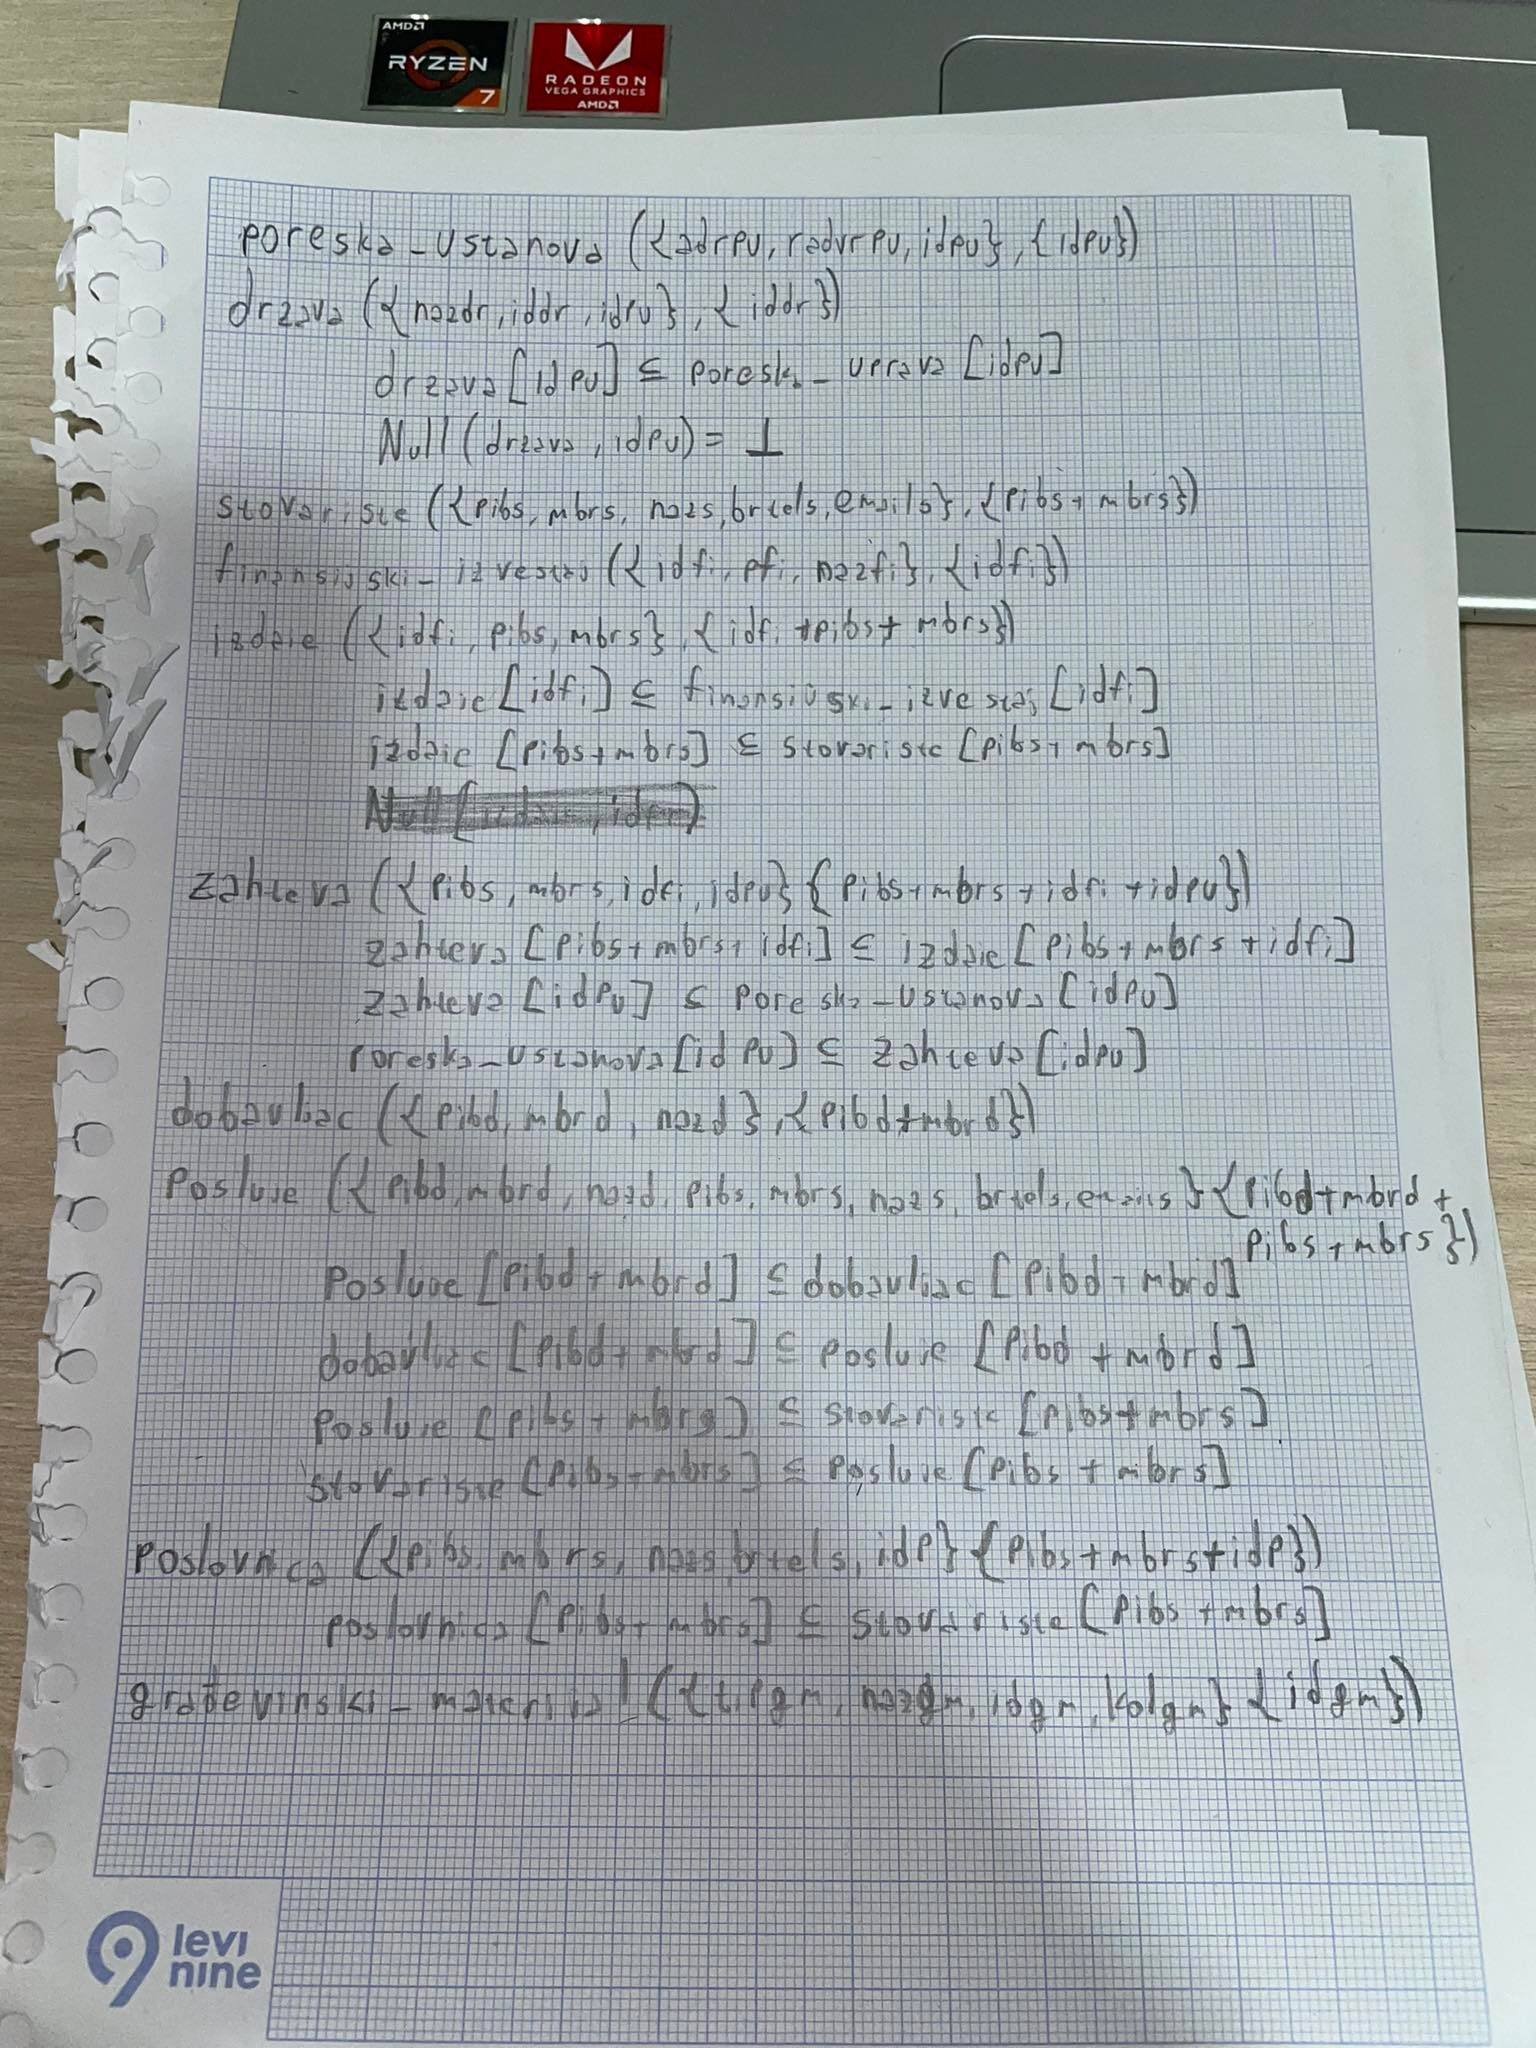 AMD
RYZEN
7
RADEON
VEGA GRAPHICS
AMD
poreska_ustanova ({adrpu, radvrpu, idpu}, {idpu})
drzava ({nazdr, iddr, idpu}, {iddr})
drzava [idpu] ⊆ poreska_uprava [idpu]
Null (drzava, idpu) = ⊥
stovariste ({pibs, mbrs, nazs, brtels, emails}, {pibs + mbrs})
finansijski_izvestaj ({idfi, pfi, nazfi}, {idfi})
izdaje ({idfi, pibs, mbrs}, {idfi + pibs + mbrs})
izdaje [idfi] ⊆ finansijski_izvestaj [idfi]
izdaje [pibs + mbrs] ⊆ stovariste [pibs + mbrs]
zahteva ({pibs, mbrs, idfi, idpu} {pibs + mbrs + idfi + idpu})
zahteva [pibs + mbrs + idfi] ⊆ izdaje [pibs + mbrs + idfi]
zahteva [idpu] ⊆ poreska_ustanova [idpu]
poreska_ustanova [idpu] ⊆ zahteva [idpu]
dobavljac ({pibd, mbrd, nazd}, {pibd + mbrd})
posluje ({pibd, mbrd, nazd, pibs, mbrs, nazs, brtels, emails} {pibd + mbrd +
pibs + mbrs})
posluje [pibd + mbrd] ⊆ dobavljac [pibd + mbrd]
dobavljac [pibd + mbrd] ⊆ posluje [pibd + mbrd]
posluje [pibs + mbrs] ⊆ stovariste [pibs + mbrs]
stovariste [pibs + mbrs] ⊆ posluje [pibs + mbrs]
poslovnica ({pibs, mbrs, nazs, brtels, idp} {pibs + mbrs + idp})
poslovnica [pibs + mbrs] ⊆ stovariste [pibs + mbrs]
građevinski_materijal ({tipgm, nazgm, idgm, kolgm} {idgm})
levi
nine